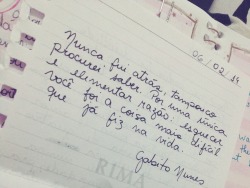 06/02/15
Nunca fui atrás, tampouco
procurei saber. Por uma única
e elementar razão: esquecer
você foi a coisa mais difícil
que já fiz na vida.
Gabito Nunes
RIMA